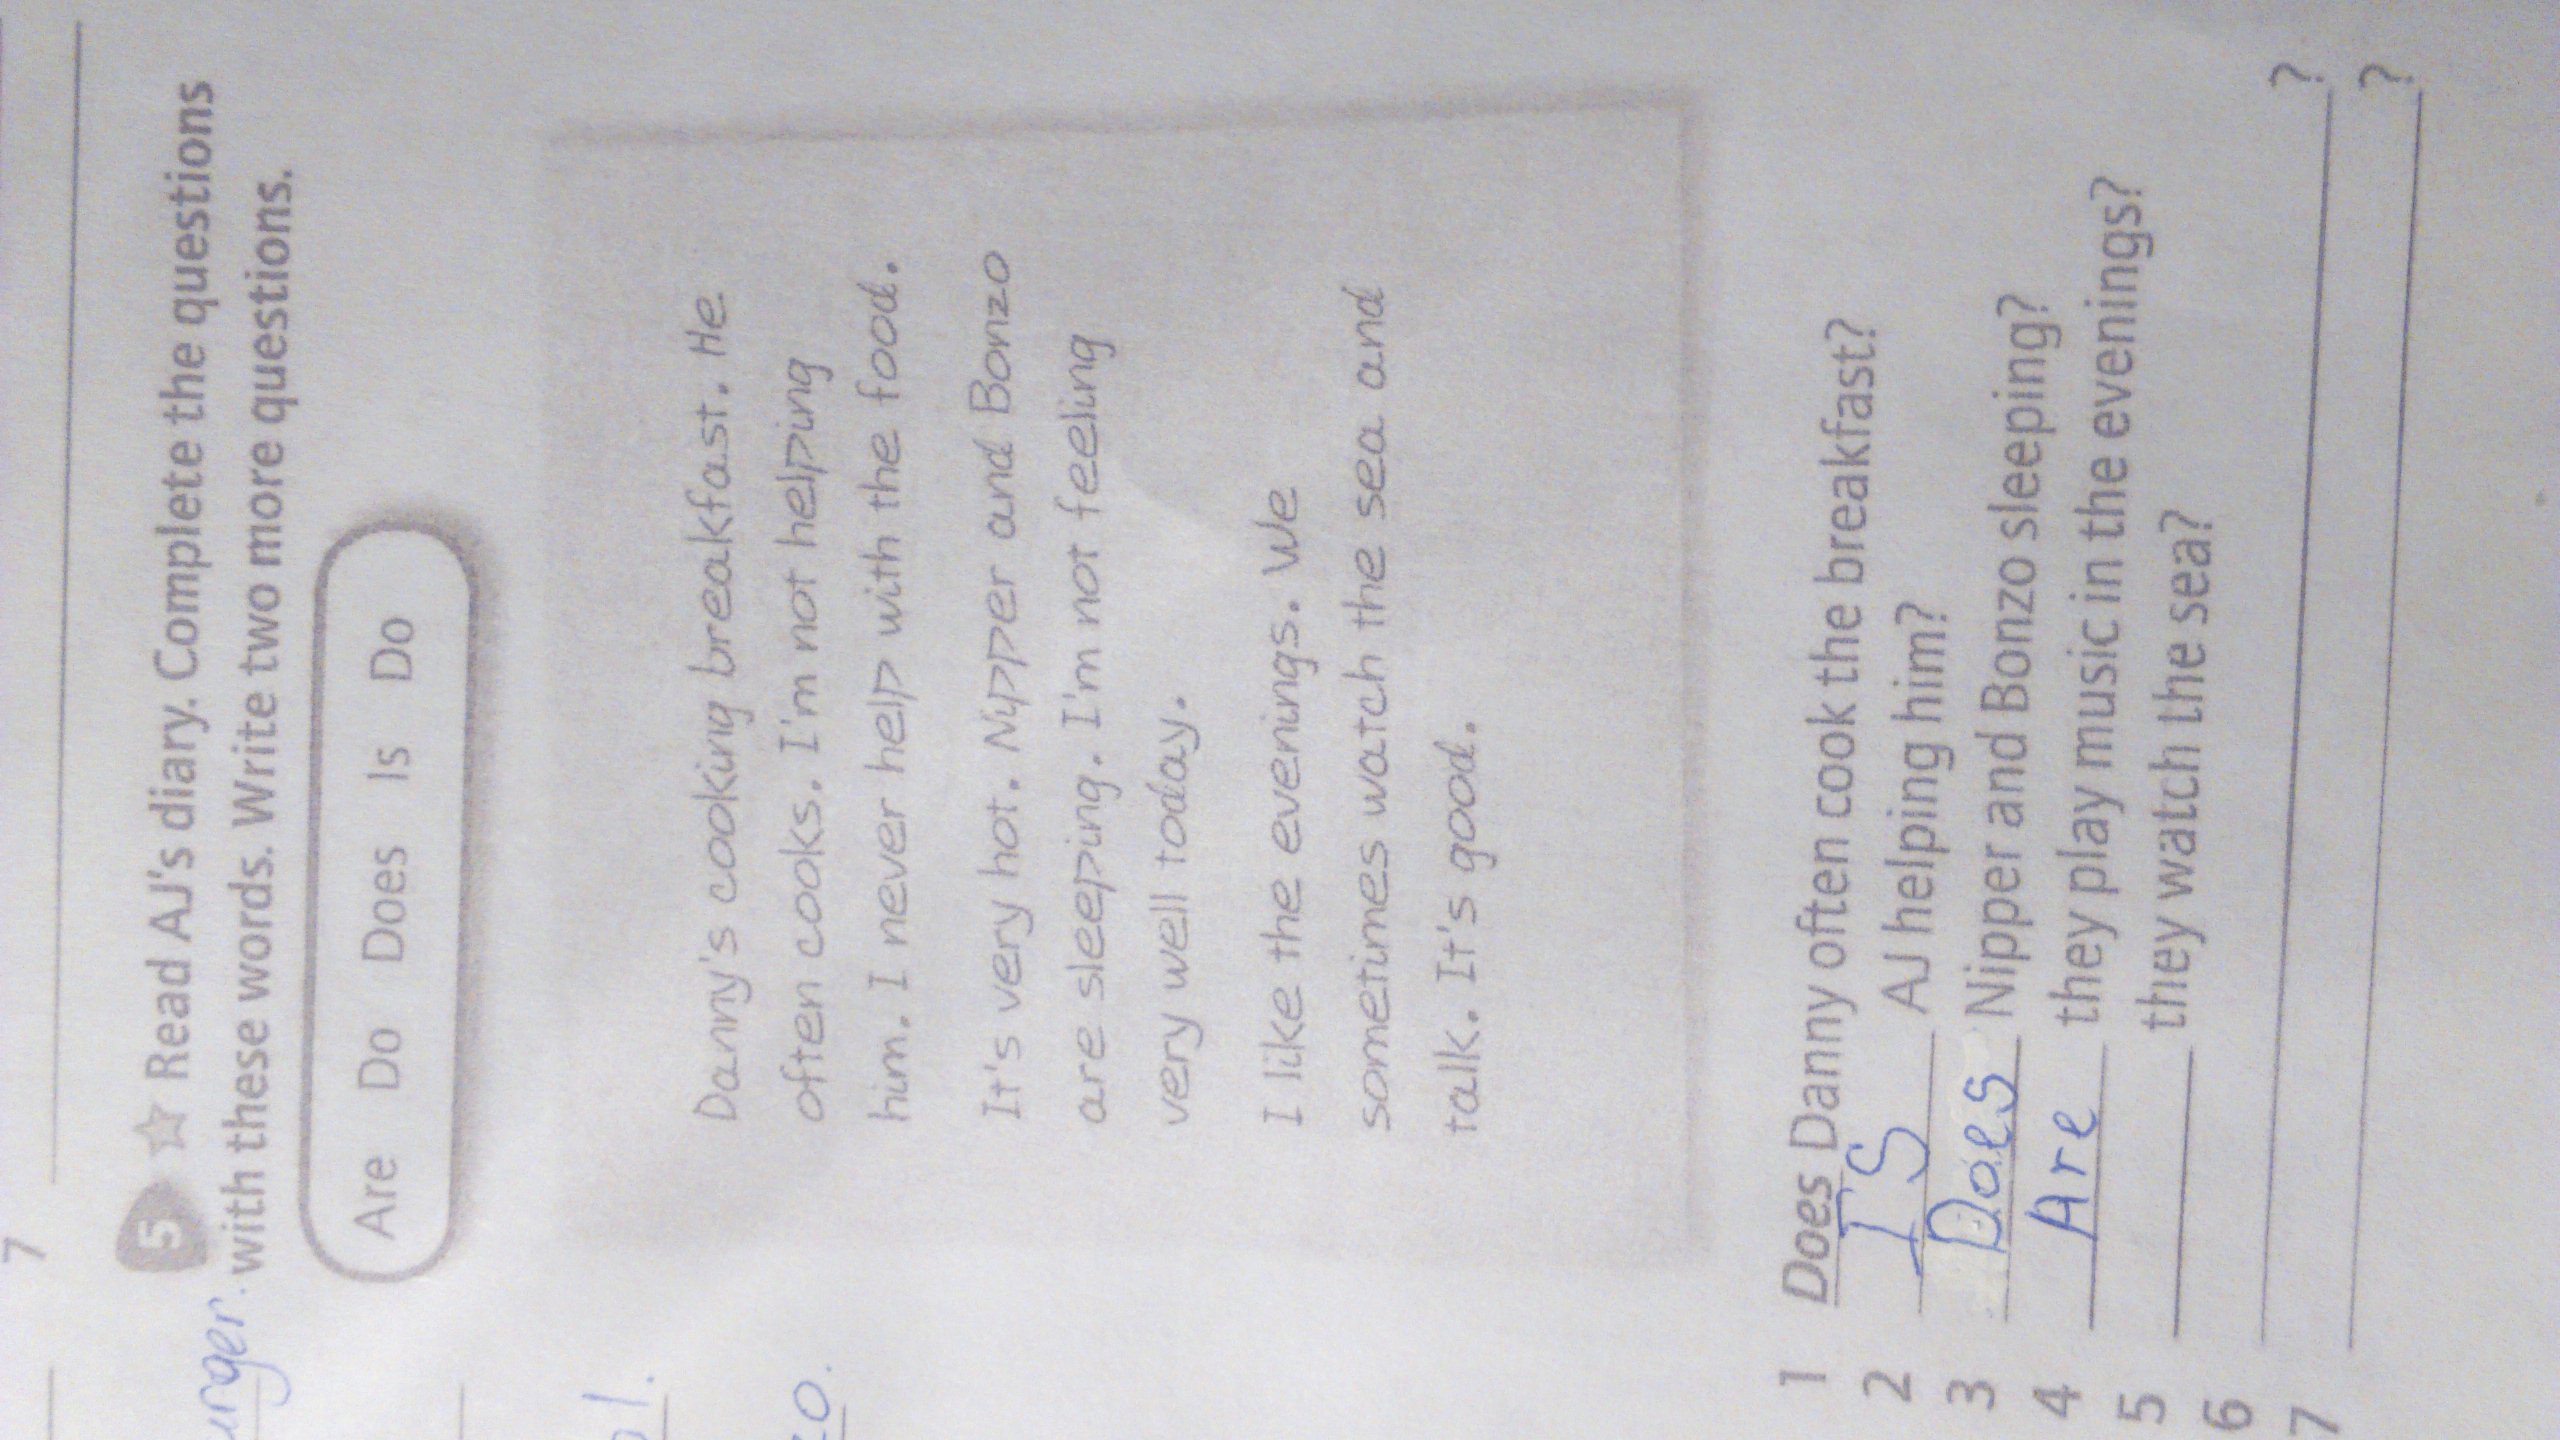 7
5 ☆ Read AJ's diary. Complete the questions
with these words. Write two more questions.
Are Do Does Is Do
Danny's cooking breakfast. He
often cooks. I'm not helping
him. I never help with the food.
It's very hot. Nipper and Bonzo
are sleeping. I'm not feeling
very well today.
I like the evenings. We
sometimes watch the sea and
talk. It's good.
1 Does Danny often cook the breakfast?
2 Is AJ helping him?
3 Does Nipper and Bonzo sleeping?
4 Are they play music in the evenings?
5 they watch the sea?
6 ?
7 ?